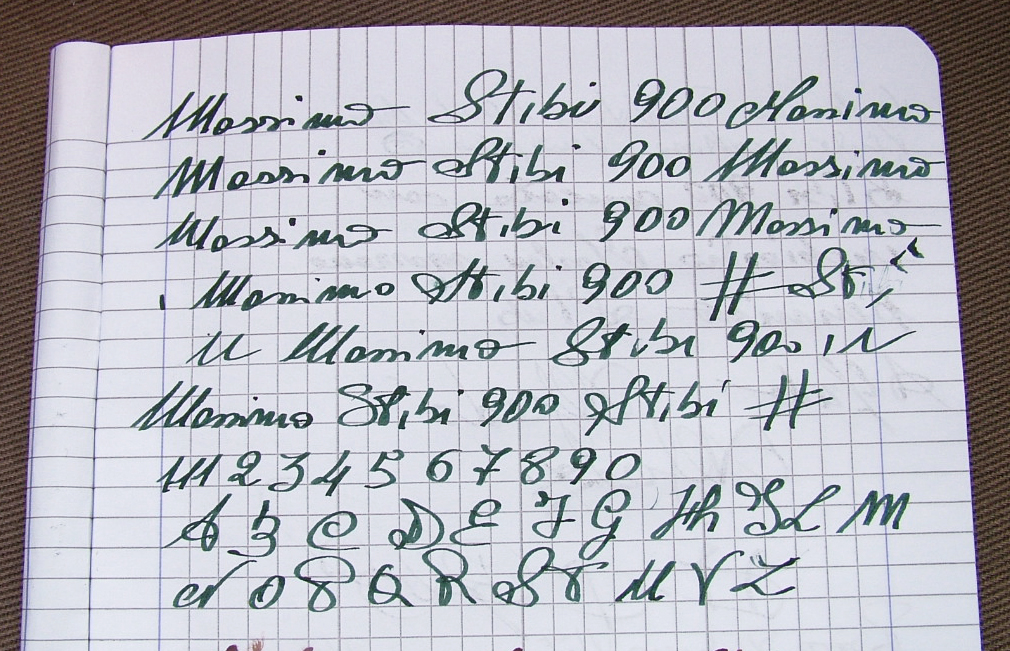 Massimo Stibi 900 Massimo
Massimo Stibi 900 Massimo
Massimo Stibi 900 Massimo
Massimo Stibi 900 # St
M Massimo Stibi 900 N
Massimo Stibi 900 Stibi #
111 2 3 4 5 6 7 8 9 0
A B C D E F G H h I L M
N O P Q R S T U V Z